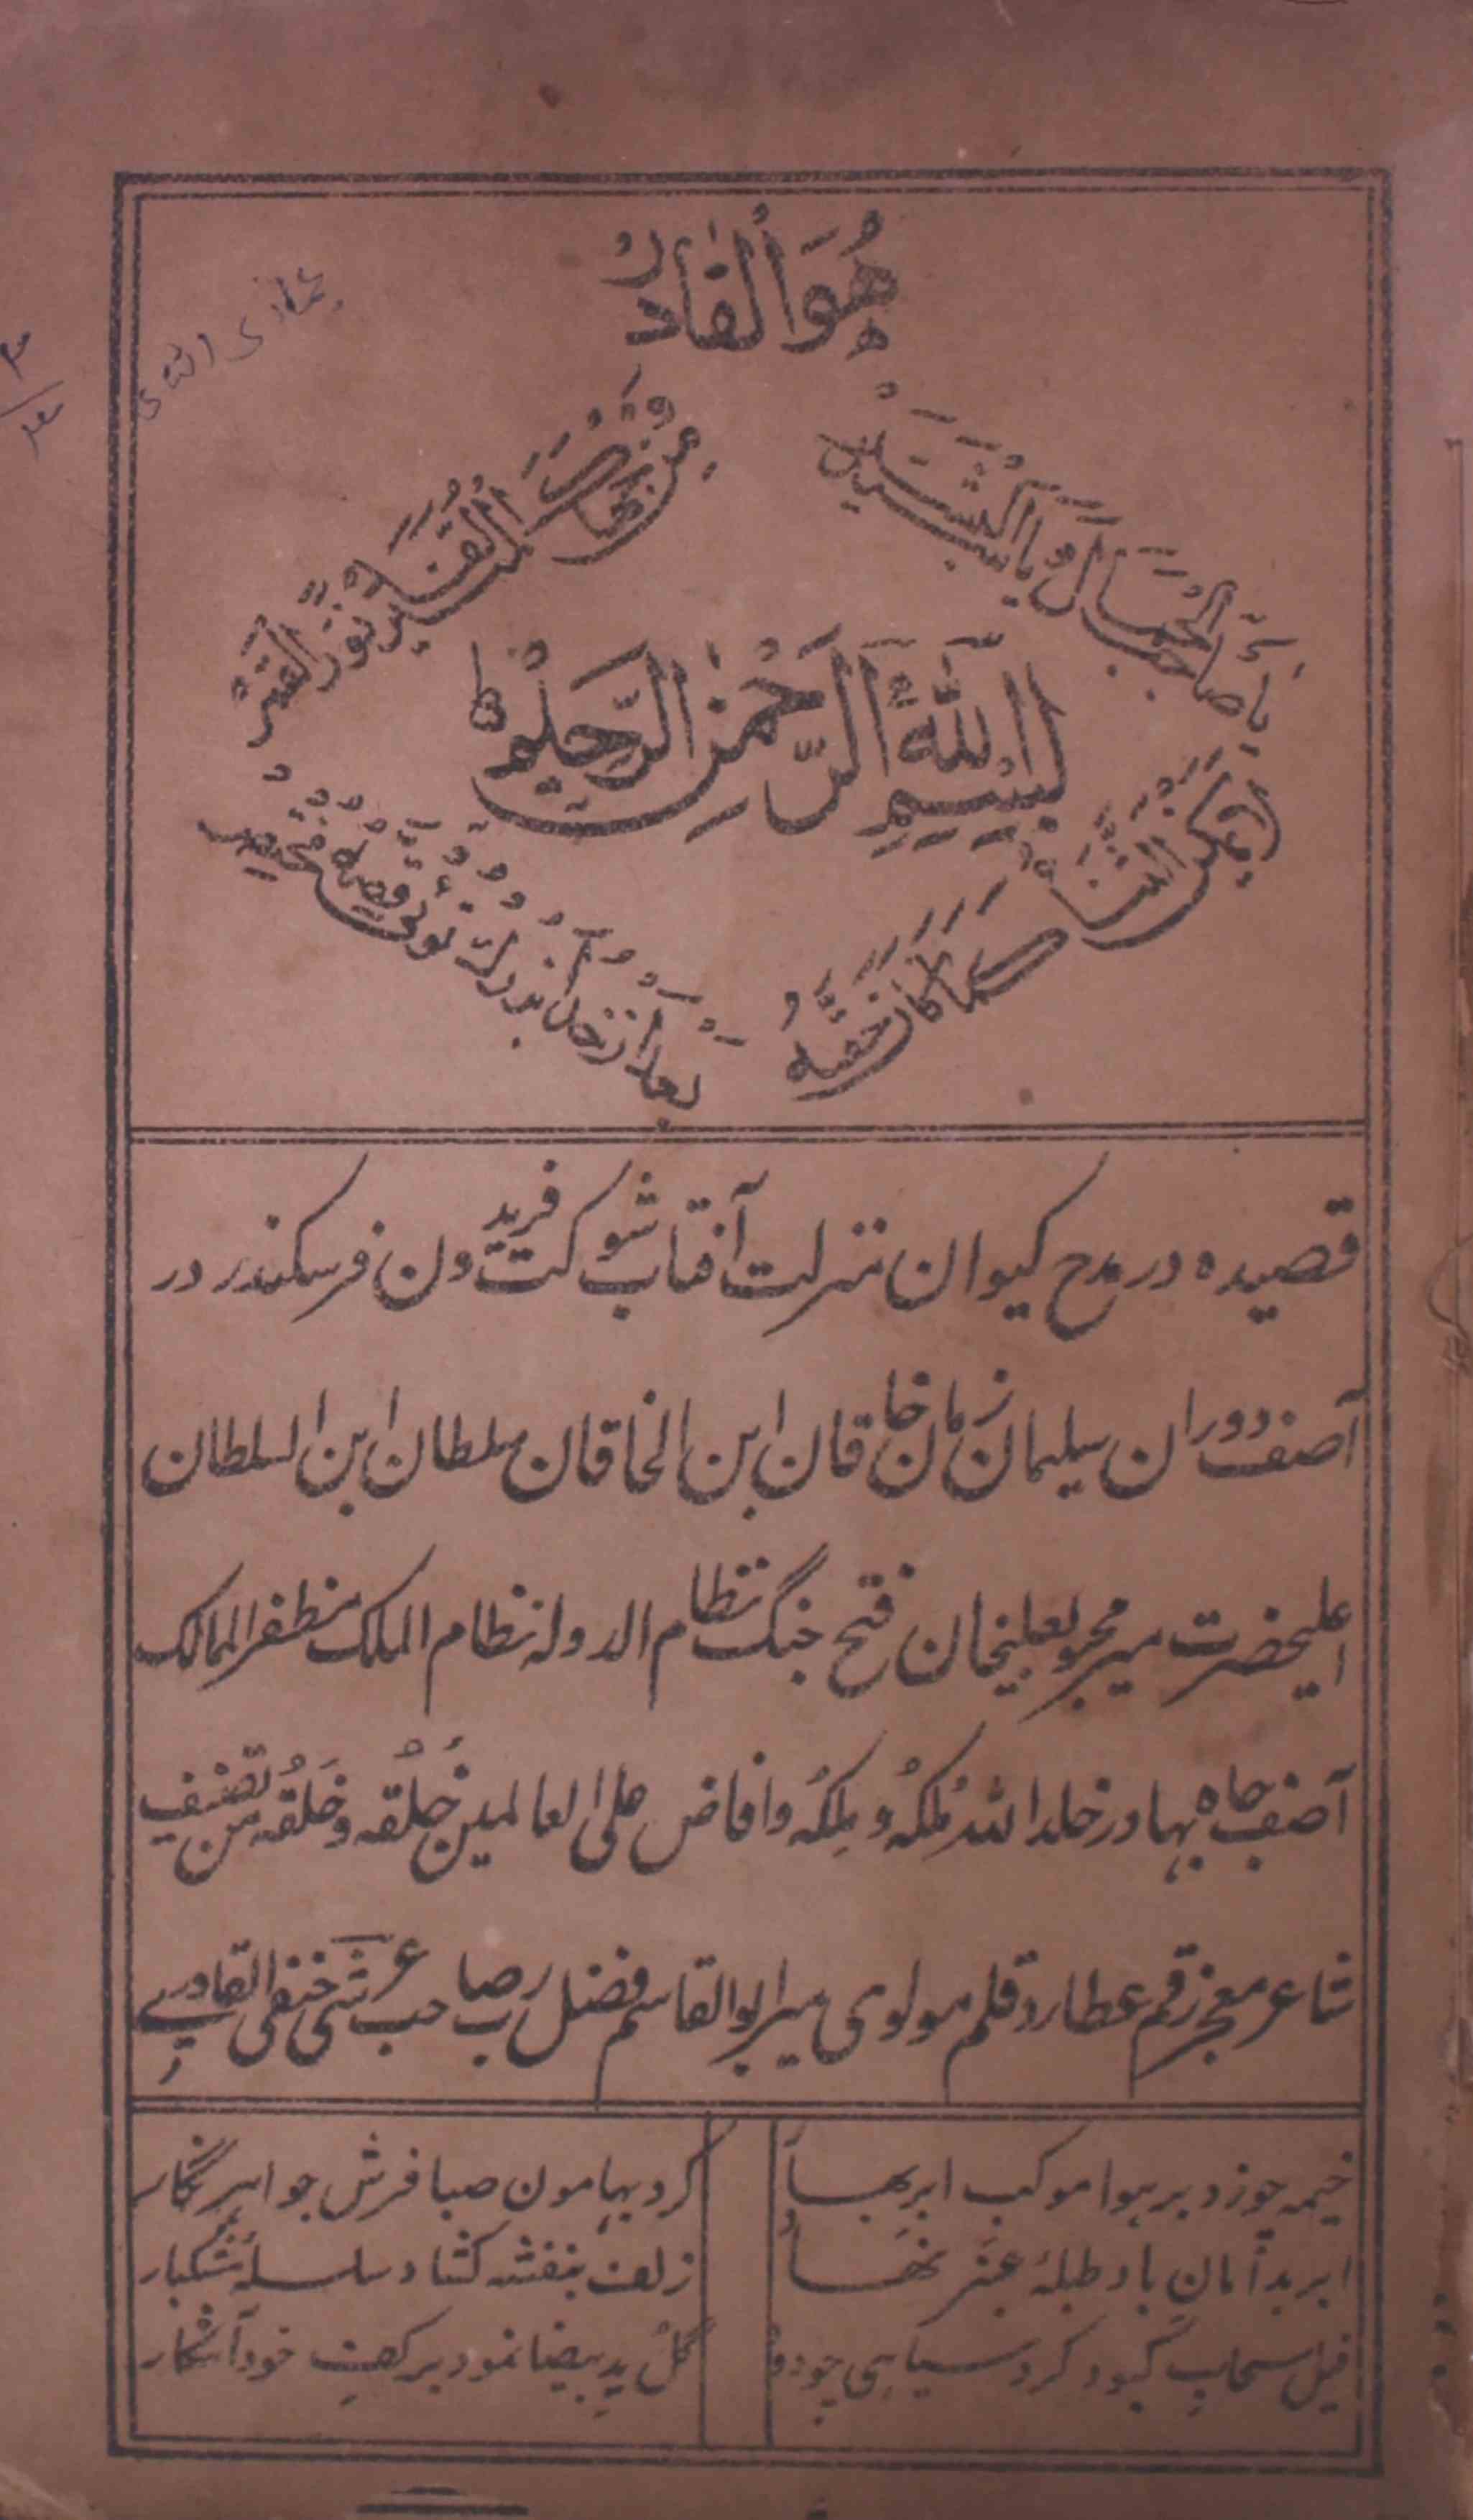 هُوَ الْقَادِرُ
يَا صَاحِبَ الْجَمَالِ وَ يَا سَيِّدَ الْبَشَرْ
مِنْ وَجْهِكَ الْمُنِيْرِ لَقَدْ نُوِّرَ الْقَمَرْ
بِسْمِ اللّٰهِ الرَّحْمٰنِ الرَّحِيْمِ
لَا يُمْكِنُ الثَّنَاءُ كَمَا كَانَ حَقُّهُ
بعد از خدا بزرگ توئی قصہ مختصر
قصیدہ در مدح کیوان منزلت آفتاب شوکت فریدون فر سکندر در
آصف دوران سلیمان زمان خاقان ابن الخاقان سلطان ابن السلطان
اعلیحضرت میر محبوبعلیخان فتح جنگ نظام الدولہ نظام الملک مظفر الممالک
آصف جاہ بہادر خلد اللہ مُلکہُ و مِلکہُ وافاض علی العالمین خُلُقہ و خَلقُہ من تصنیف
شاعر معجز رقم عطارد قلم مولوی میر ابوالقاسم فضل رب صاحب عرشی حنفی القادرے
خیمہ چو زد بر ہوا موکب ابر بہار کرد بہامون صبا فرش جواہر نگار
ابر بدامان باد طبلۂ عنبر نہاد زلف بنفشہ کشاد سلسلۂ مشکبار
فیل سحاب کبود کرد سیاہی چو دود گل ید بیضا نمود بر کف خود آشکار